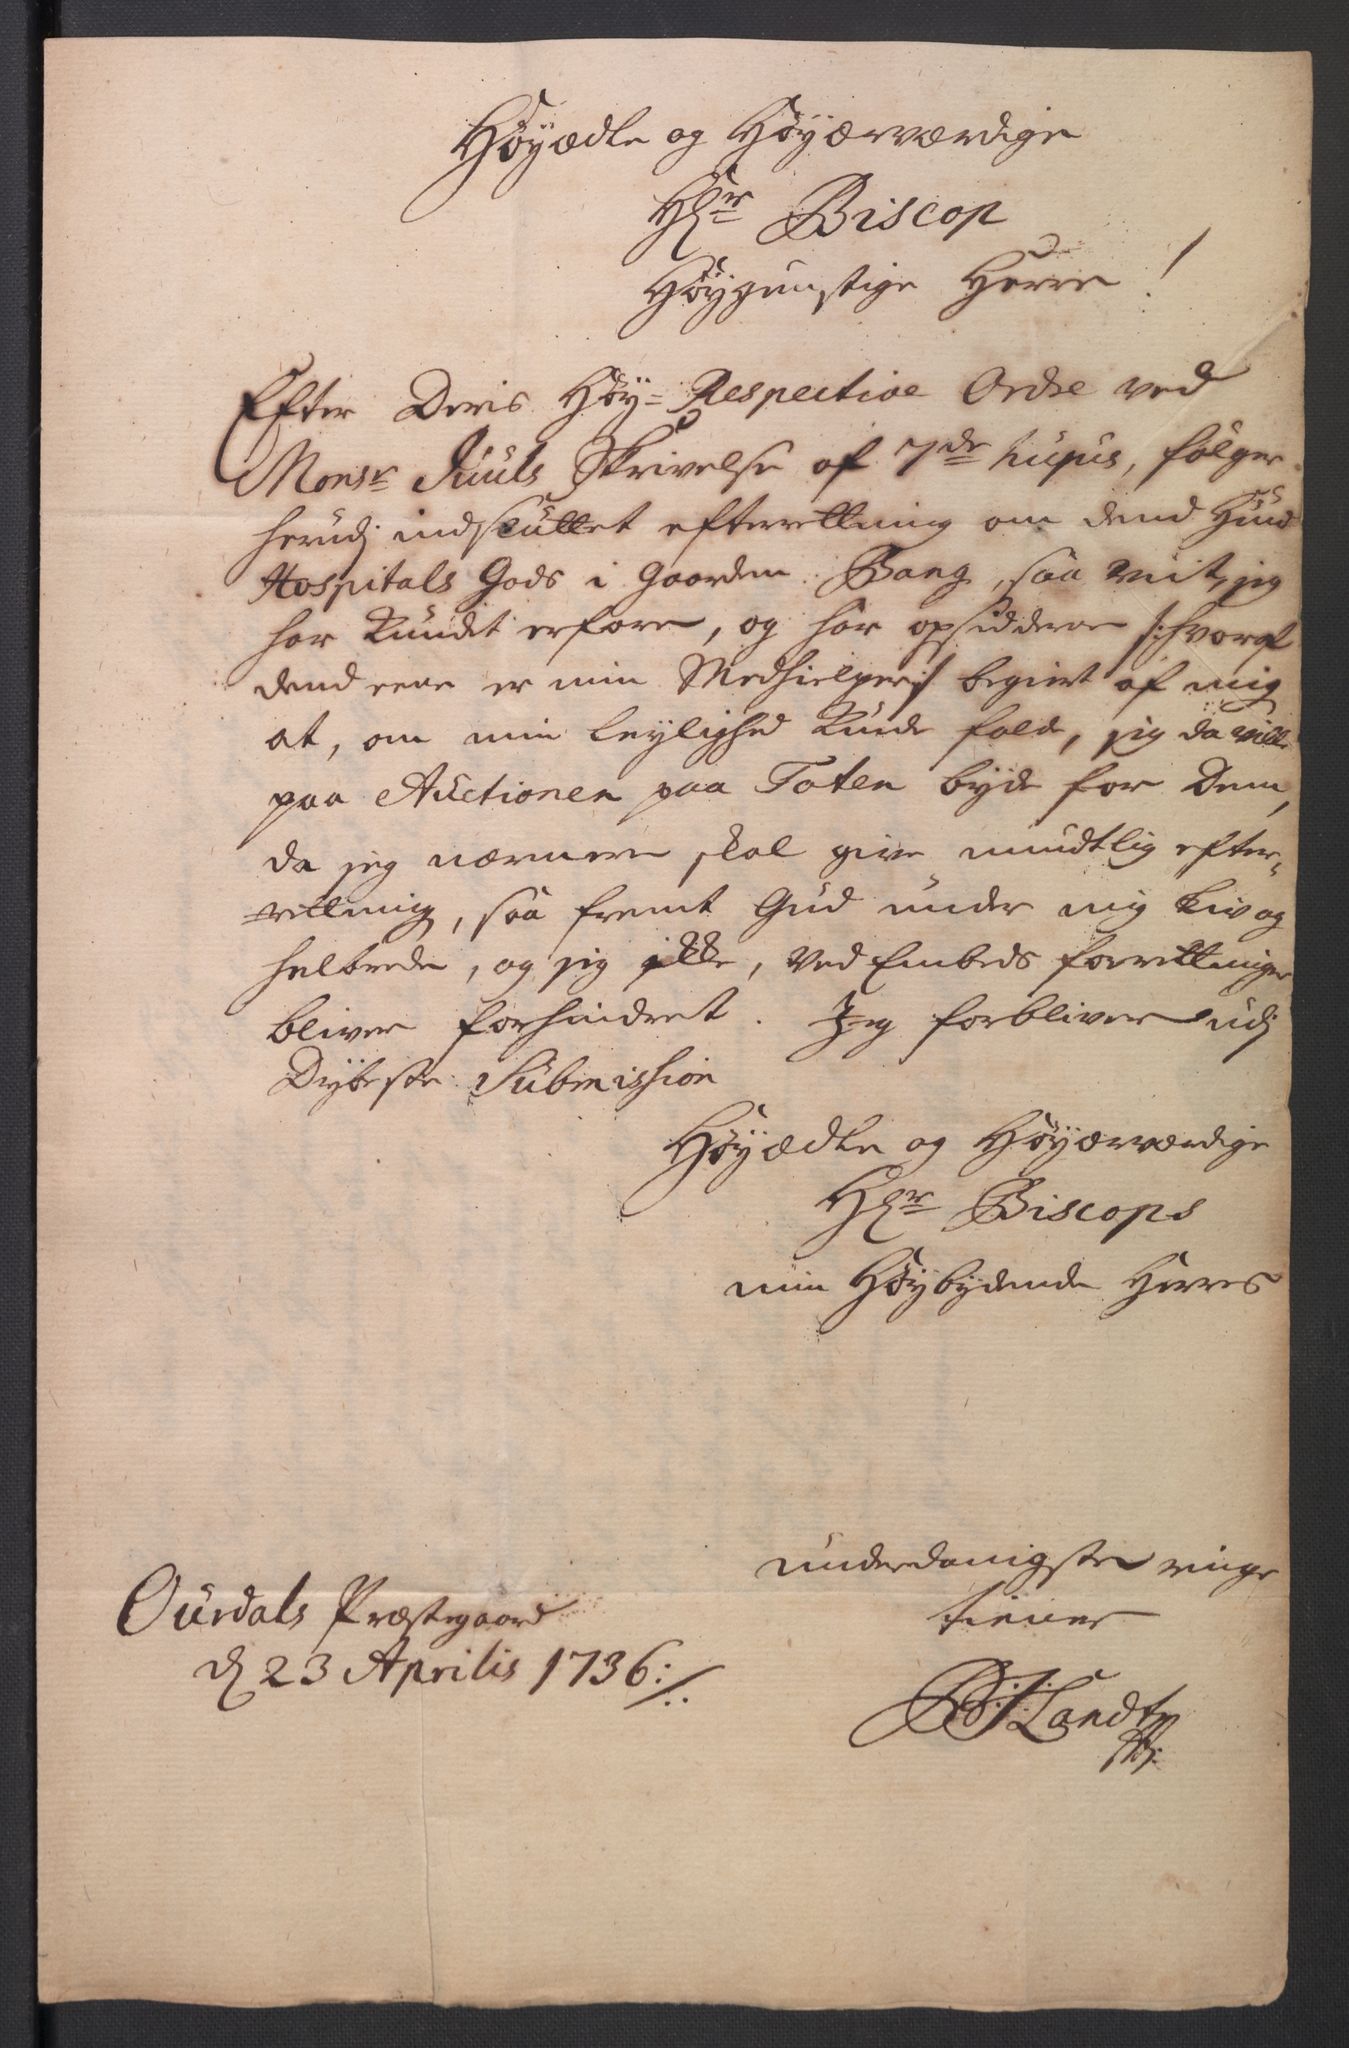 Höyædle og Höyærværdige
Hr Biscop
Höygunstige Herre!
Efter Deris Höy= Respective Ordre ved
Monsr Juuls Skrivelse af 7de hujus, fölger
herudj indsluttet efterrettning om dend
Hospitals Gods i Gaarden Bang, saa viit, jeg
har kundet erfare, og har opsidderne /:hvoraf
dend eene er min Medhielper:/ begiert af mig
at, om min leylighed kunde falde, jeg da ville
paa Auctionen paa Toten byde for Dem,
da jeg nærmere skal give mundtlig efter-
rettning, saa fremt Gud under mig Liv og
helbrede, og jeg ikke, ved Embeds forrettninger
bliver forhindret. Jeg forbliver udj
Dybeste Submission
Höyædle og Höyærværdige
Hr Biscops
min Höybydende Herres
underdanigste ringe
tiener
Ourdals Præstegaard
d 23 Aprilis 1736:/:
Landt